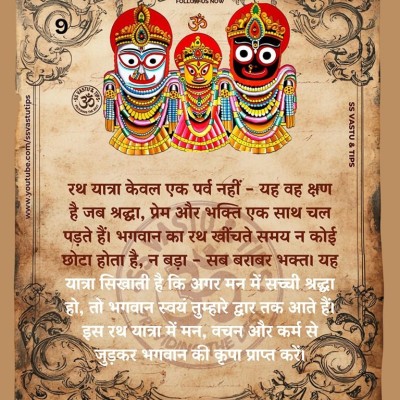 FOLLOW US NOW
9
www.youtube.com/ssvastutips
SS VASTU & TIPS
रथ यात्रा केवल एक पर्व नहीं – यह वह क्षण
है जब श्रद्धा, प्रेम और भक्ति एक साथ चल
पड़ते हैं। भगवान का रथ खींचते समय न कोई
छोटा होता है, न बड़ा – सब बराबर भक्त। यह
यात्रा सिखाती है कि अगर मन में सच्ची श्रद्धा
हो, तो भगवान स्वयं तुम्हारे द्वार तक आते हैं।
इस रथ यात्रा में मन, वचन और कर्म से
जुड़कर भगवान की कृपा प्राप्त करें।